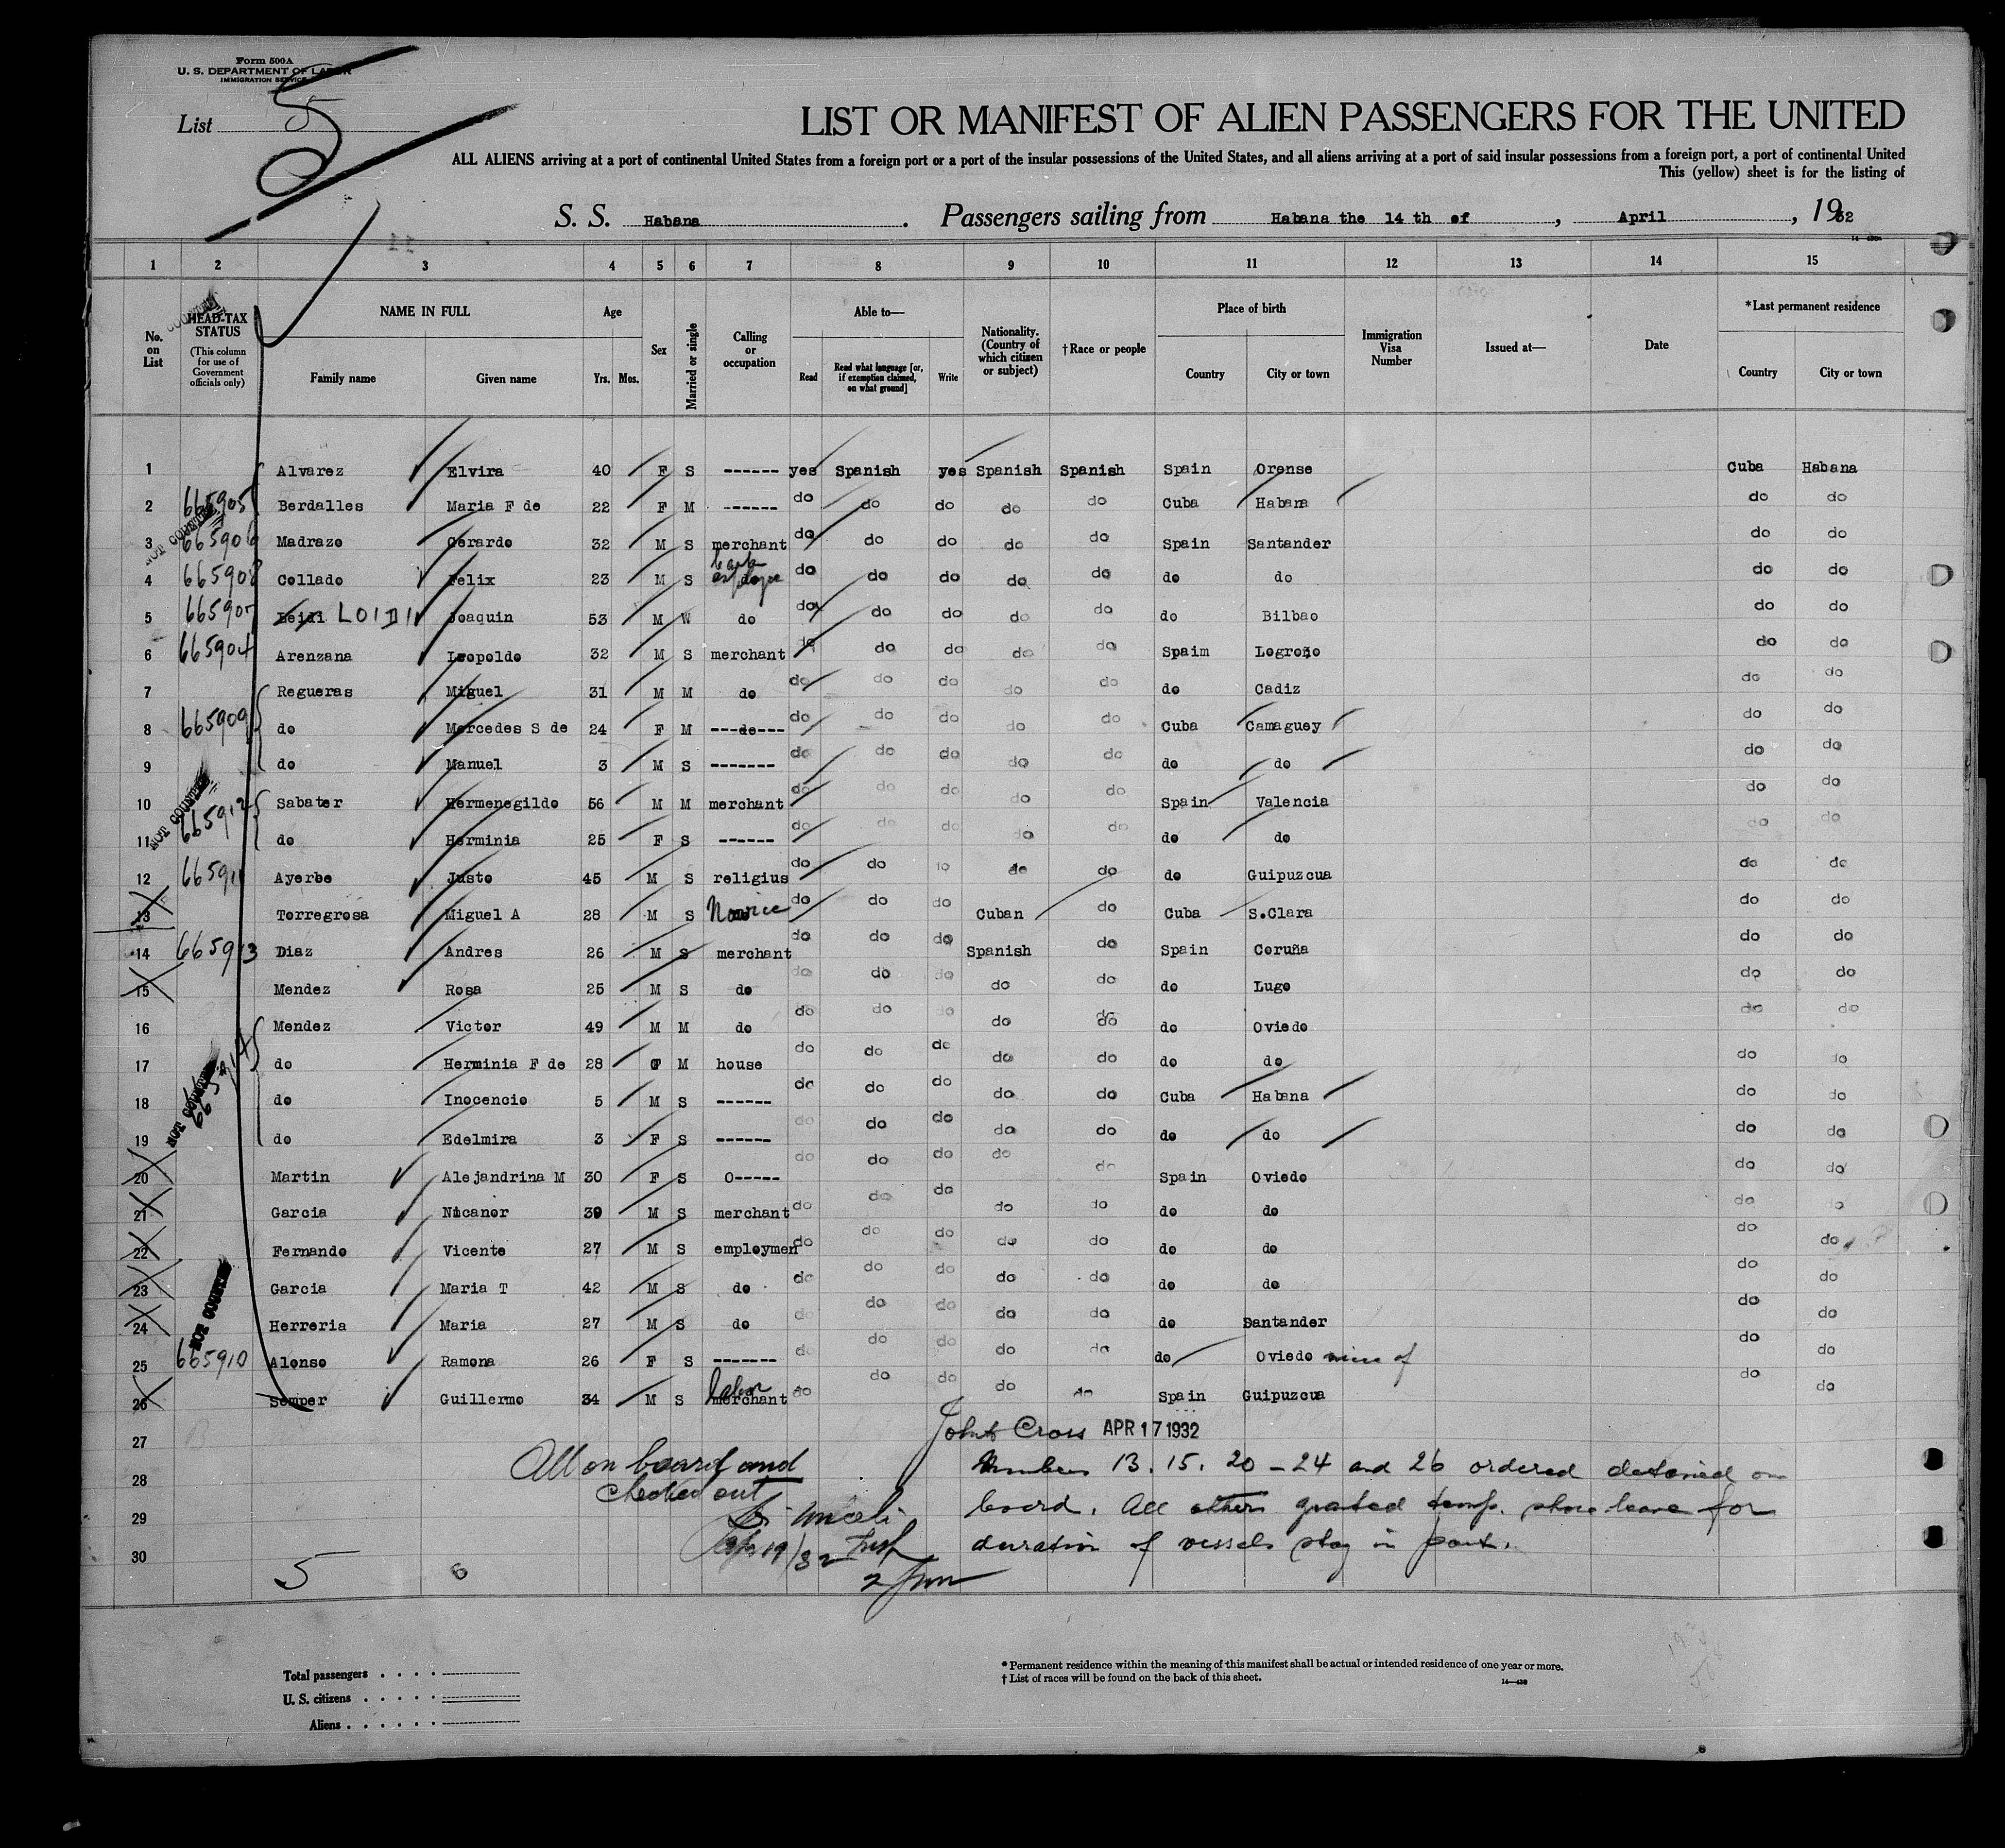 Form 500A
U. S. DEPARTMENT OF LABOR
IMMIGRATION SERVICE
List 5
5
LIST OR MANIFEST OF ALIEN PASSENGERS FOR THE UNITED
ALL ALIENS arriving at a port of continental United States from a foreign port or a port of the insular possessions of the United States, and all aliens arriving at a port of said insular possessions from a foreign port, a port of continental United
This (yellow) sheet is for the listing of
S. S. Habana. Passengers sailing from Habana the 14 th of, April, 1932
1 2 3 4 5 6 7 8 9 10 11 12 13 14 15
No. on List
HEAD-TAX STATUS (This column for use of Government officials only)
NAME IN FULL Family name Given name
Age Yrs. Mos.
Sex
Married or single
Calling or occupation
Able to— Read Read what language [or, if exemption claimed, on what ground] Write
Nationality. (Country of which citizen or subject)
†Race or people
Place of birth Country City or town
Immigration Visa Number
Issued at—
Date
*Last permanent residence Country City or town
1 Alvarez Elvira 40 F S ------ yes Spanish yes Spanish Spanish Spain Orense Cuba Habana
2 665905 Berdalles Maria F de 22 F M ------ do do do do do Cuba Habana do do
3 665906 Madrazo Gerardo 32 M S merchant do do do do do Spain Santander do do
4 665908 Collado Felix 23 M S do do do do do do do do do
5 665907 Leidi LOIDI Joaquin 53 M W do do do do do do do Bilbao do do
6 665904 Arenzana Leopoldo 32 M S merchant do do do do do Spaim Logroño do do
7 Regueras Miguel 31 M M do do do do do do do Cadiz do do
8 665909 do Mercedes S de 24 F M ---do--- do do do do do Cuba Camaguey do do
9 do Manuel 3 M S ------- do do do do do do do do do
10 Sabater Hermenegildo 56 M M merchant do do do do do Spain Valencia do do
11 665912 do Herminia 25 F S ------ do do do do do do do do do
12 665911 Ayerbe Justo 45 M S religius do do do do do do Guipuzcua do do
13 Torregrosa Miguel A 28 M S Novice do do do Cuban do Cuba S.Clara do do
14 665913 Diaz Andres 26 M S merchant do do do Spanish do Spain Coruña do do
15 Mendez Rosa 25 M S do do do do do do do Lugo do do
16 Mendez Victor 49 M M do do do do do do do Oviedo do do
17 do Herminia F de 28 F M house do do do do do do do do do
18 do Inocencio 5 M S ------ do do do do do Cuba Habana do do
19 do Edelmira 3 F S ------ do do do do do do do do do
20 Martin Alejandrina M 30 F S O----- do do do do do Spain Oviedo do do
21 Garcia Nicanor 39 M S merchant do do do do do do do do do
22 Fernando Vicente 27 M S employmen do do do do do do do do do
23 Garcia Maria T 42 M S do do do do do do do do do do
24 Herreria Maria 27 M S do do do do do do do Santander do do
25 665910 Alonso Ramona 26 F S ------- do do do do do do Oviedo niece of do do
26 Semper Guillermo 34 M S merchant labor do do do do do Spain Guipuzcua do do
NOT COUNTED
NOT COUNTED
NOT COUNTED
NOT COUNTED
27 Cross APR 17 1932
28 All on board and Numbers 13. 15. 20 - 24 and 26 ordered detained on
checked out
29 board. All others granted temp. shore leave for
30 duration of vessels stay in port.
19/32
5 6
Total passengers
U. S. citizens
Aliens
* Permanent residence within the meaning of this manifest shall be actual or intended residence of one year or more.
† List of races will be found on the back of this sheet.